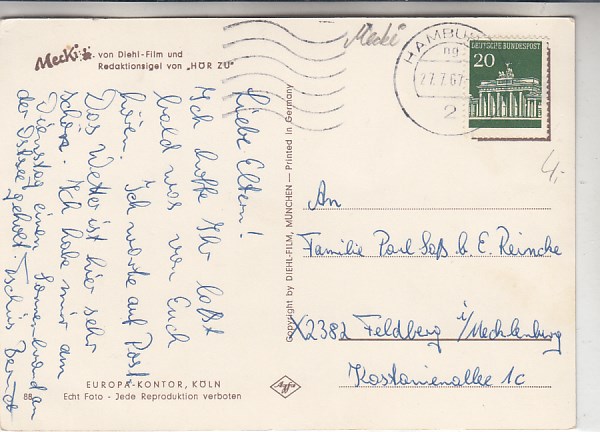 Mecki
von Diehl-Film und
Redaktionsigel von „HÖR ZU"
Mecki
HAMBU
27.7.67
2
DEUTSCHE BUNDESPOST
20
4,-
Liebe Eltern!
Ich hoffe Ihr laßt
bald was von Euch
hören. Ich warte auf Post
Das Wetter ist hier sehr
schön. Ich habe mir am
Dienstag einen Sonnenbrand an
der Ostsee geholt. Tschüs Bernd
Copyright by DIEHL-FILM, MÜNCHEN — Printed in Germany
An
Familie Paul Saß b. E. Reincke
X2382 Feldberg i/Mecklenburg
Kastanienallee 1c
EUROPA-KONTOR, KÖLN
88 Echt Foto - Jede Reproduktion verboten
Agfa